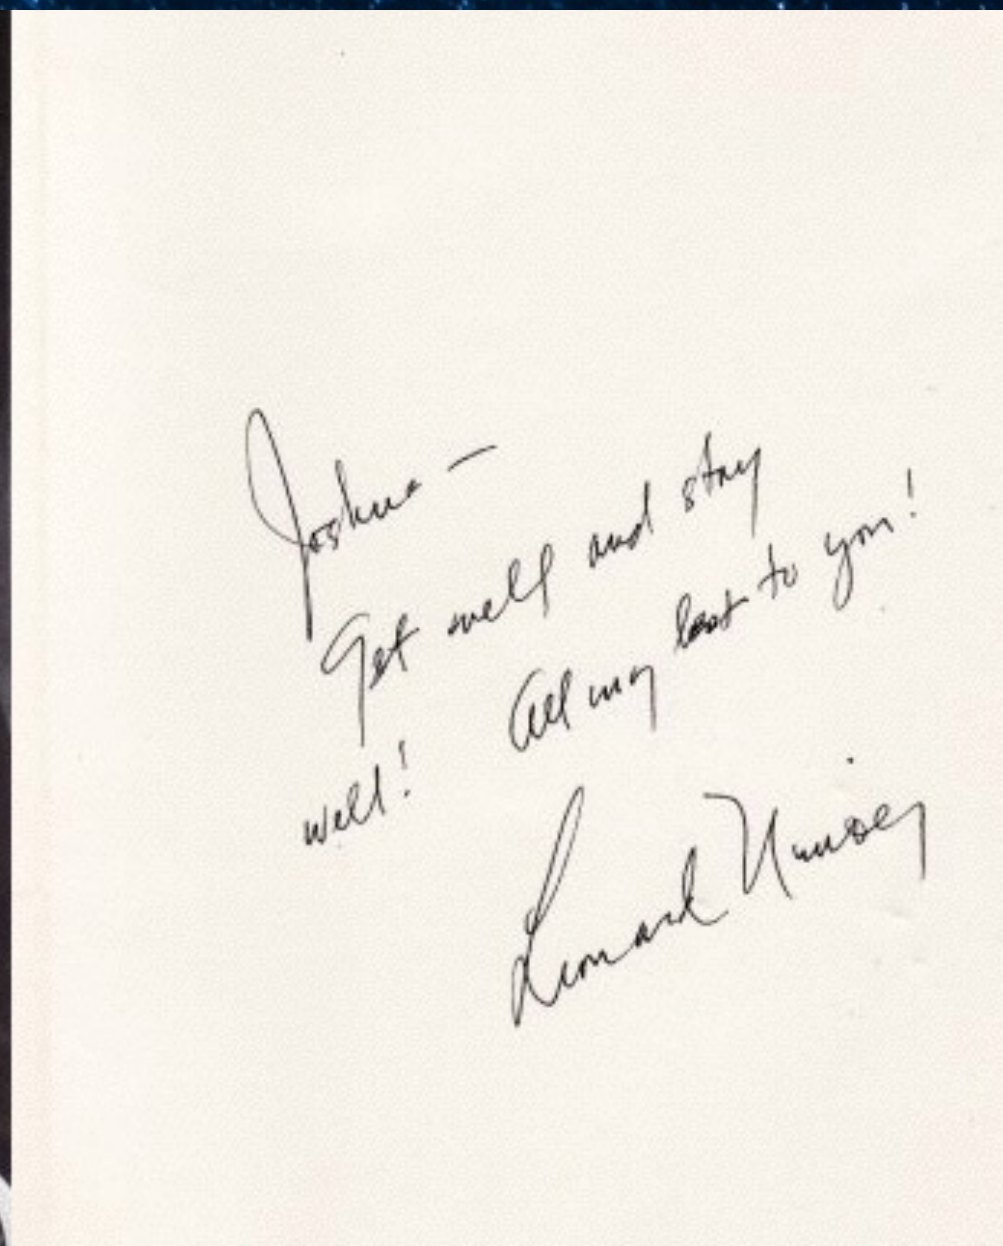 Joshua –
Get well and stay
well! All my best to you!
Leonard Nimoy